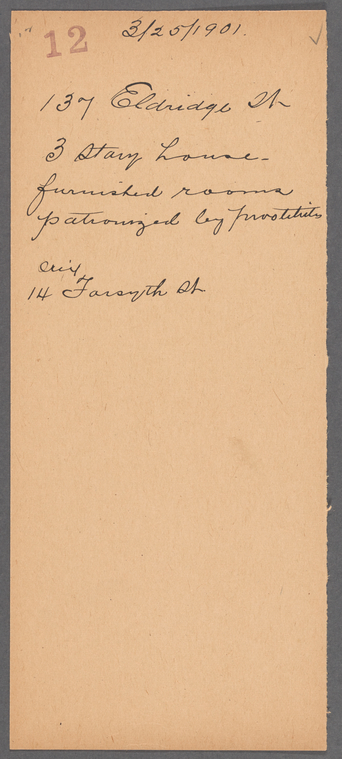 12 3/25/1901.
137 Eldridge St
3 story house-
furnished rooms
patronized by prostitutes
14 Forsyth St.